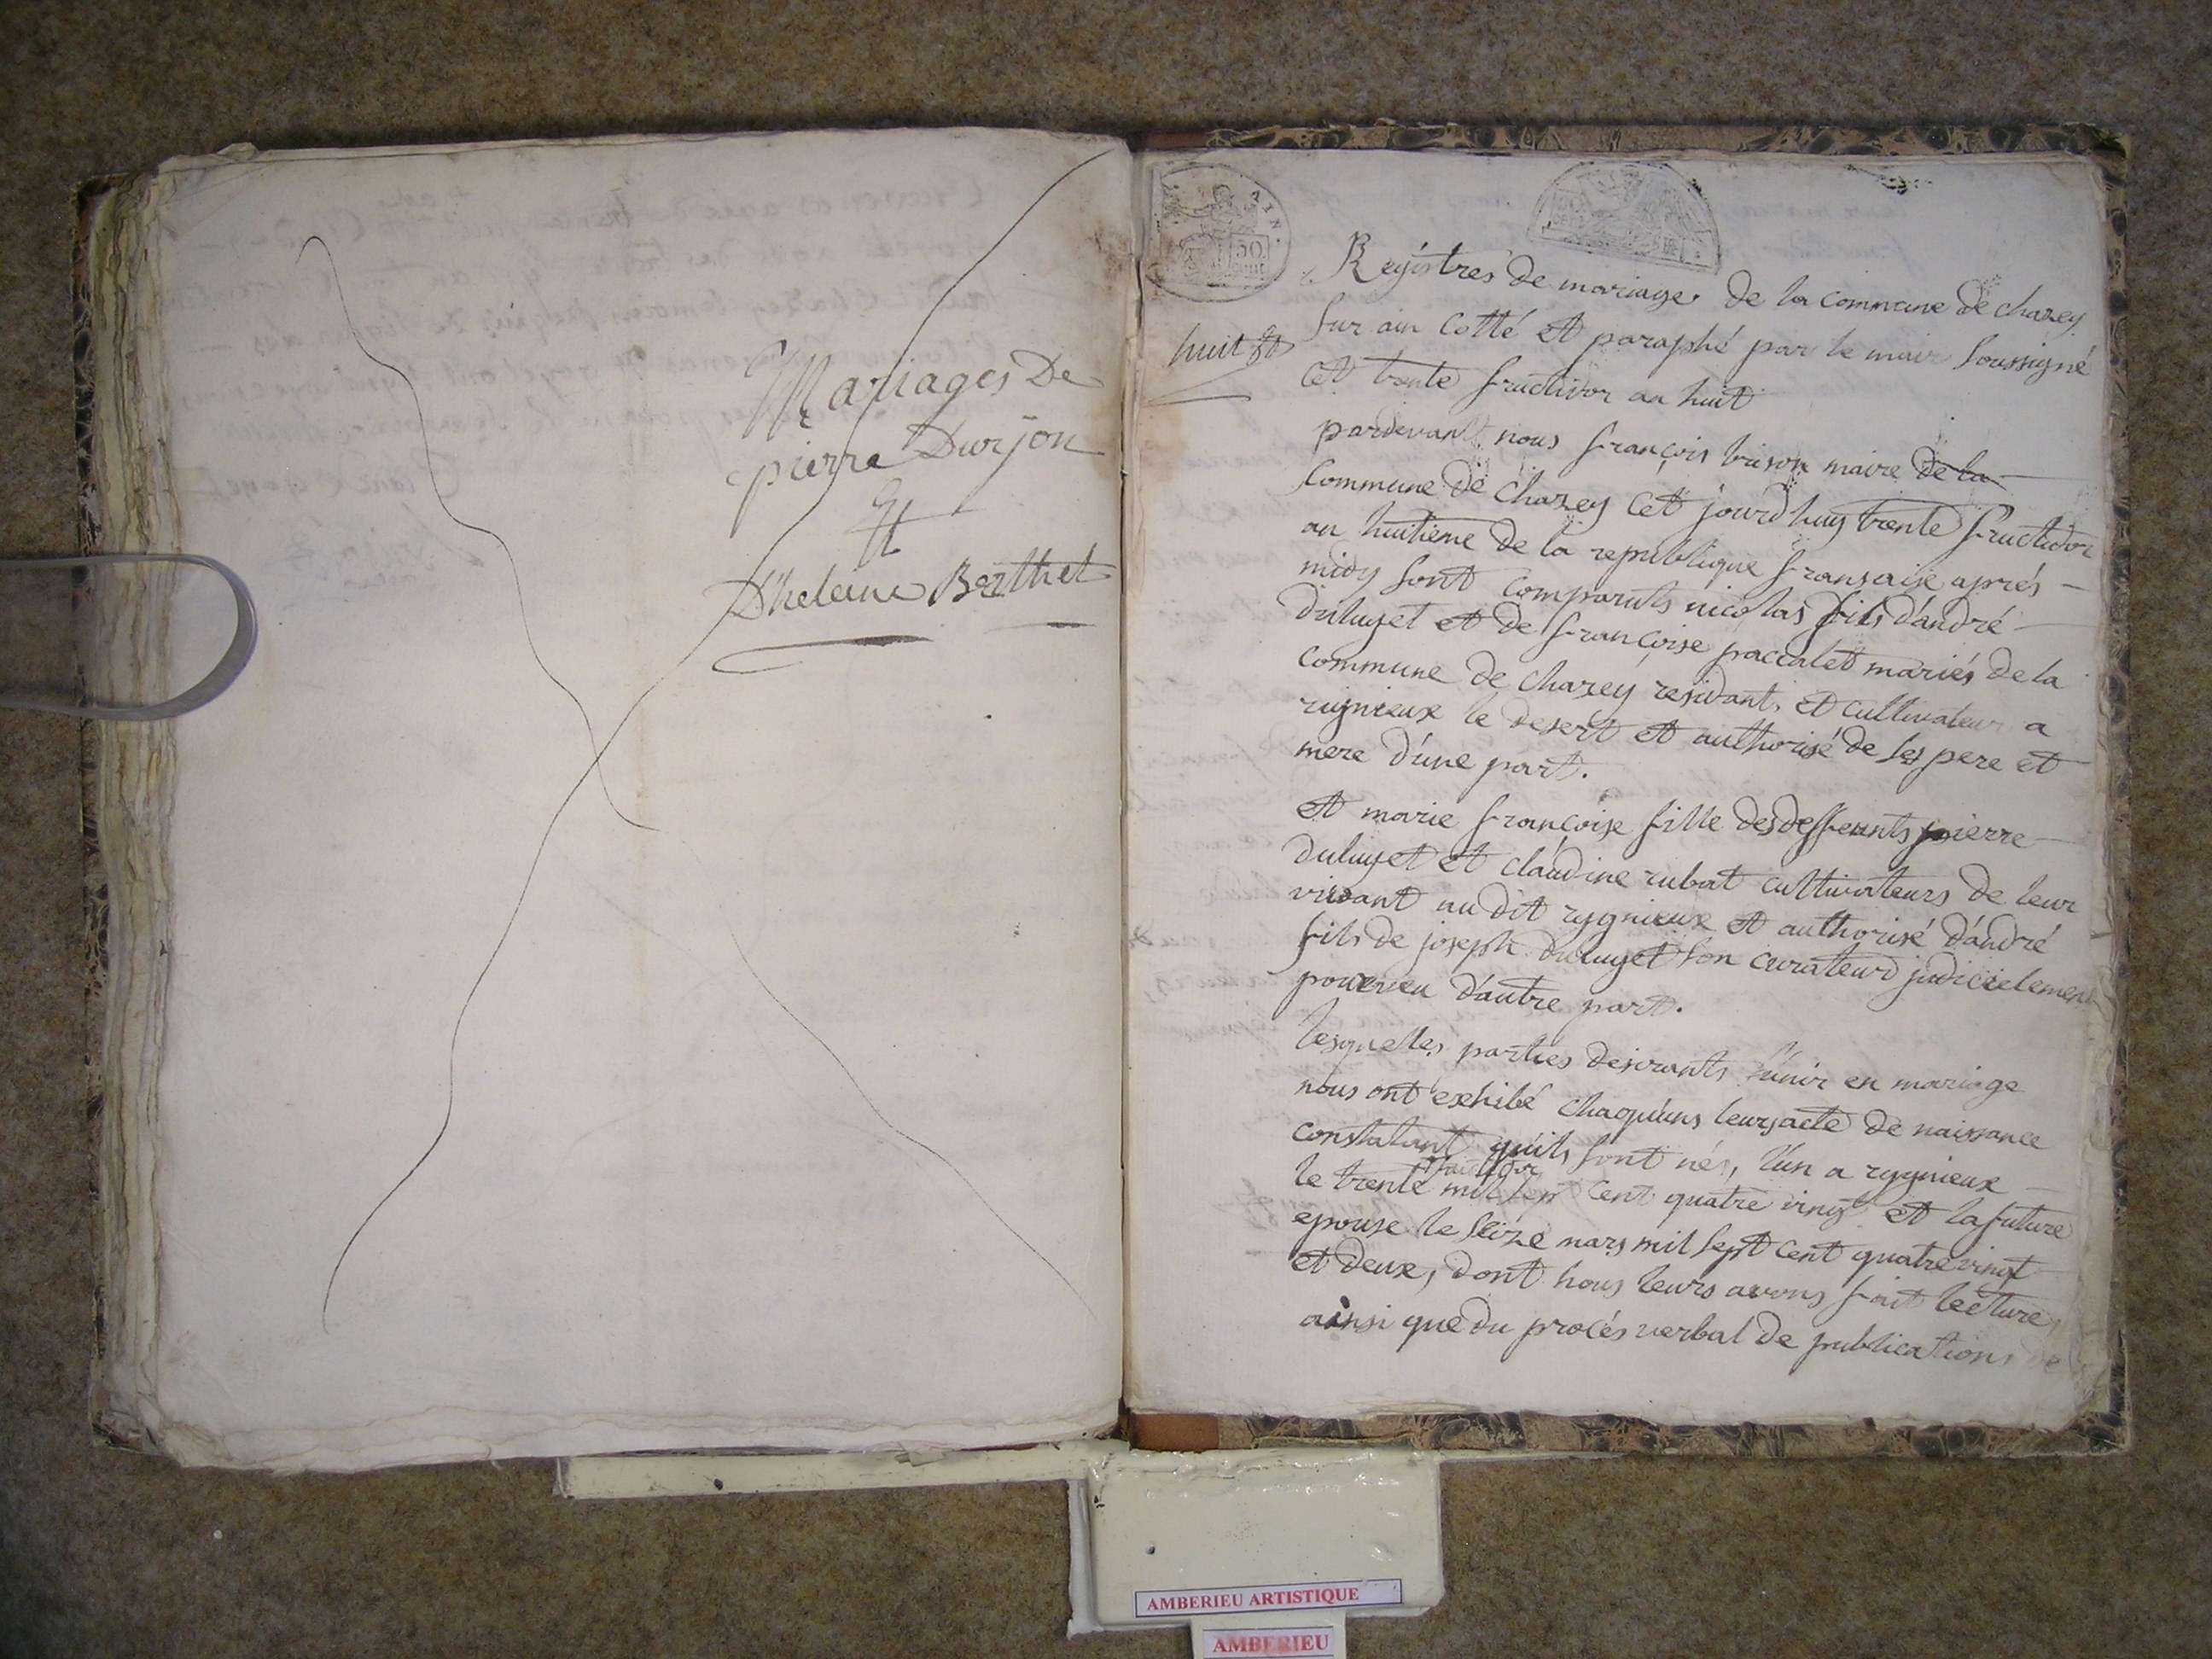 Mariages De
pierre Durjon
Et
D'heleine Berthet
AIN.
50.
Registres de mariage de la commune de chazey
sur ain Cotté et paraphé par le maire soussigné
huit
Cet trente fructidor an huit
pardevant nous françois brison maire de la
Commune de Chazey Cet jourd huy trente fructidor
an huitieme de la republique fransaise aprés
midy sont comparuts nicolas fils d'andré
duluyet et de françoise paccalet mariés de la
commune de chazey residant et cultivateur a
rignieux le desert et authorisé de ses pere et
mere d'une part.
et marie françoise fille des deffeunts pierre
duluyet et claudine rubat cultivateurs de leur
vivant au dit rygnieux et authorisé d'andré
fils de joseph duluyet son curateur judicielement
pourveu d'autre part.
lesquelles parties desirants s'unir en mariage
nous ont exhibé chaqu'uns leurs acte de naissance
constatant qu'ils sont nés, l'un a rygnieux
le trente mil sept cent quatre vingt et la future
epouse le seize mars mil sept cent quatre vingt
et deux, dont nous leurs avons fait lecture
ainsi que du procés verbal de publications de
AMBERIEU ARTISTIQUE
AMBERIEU